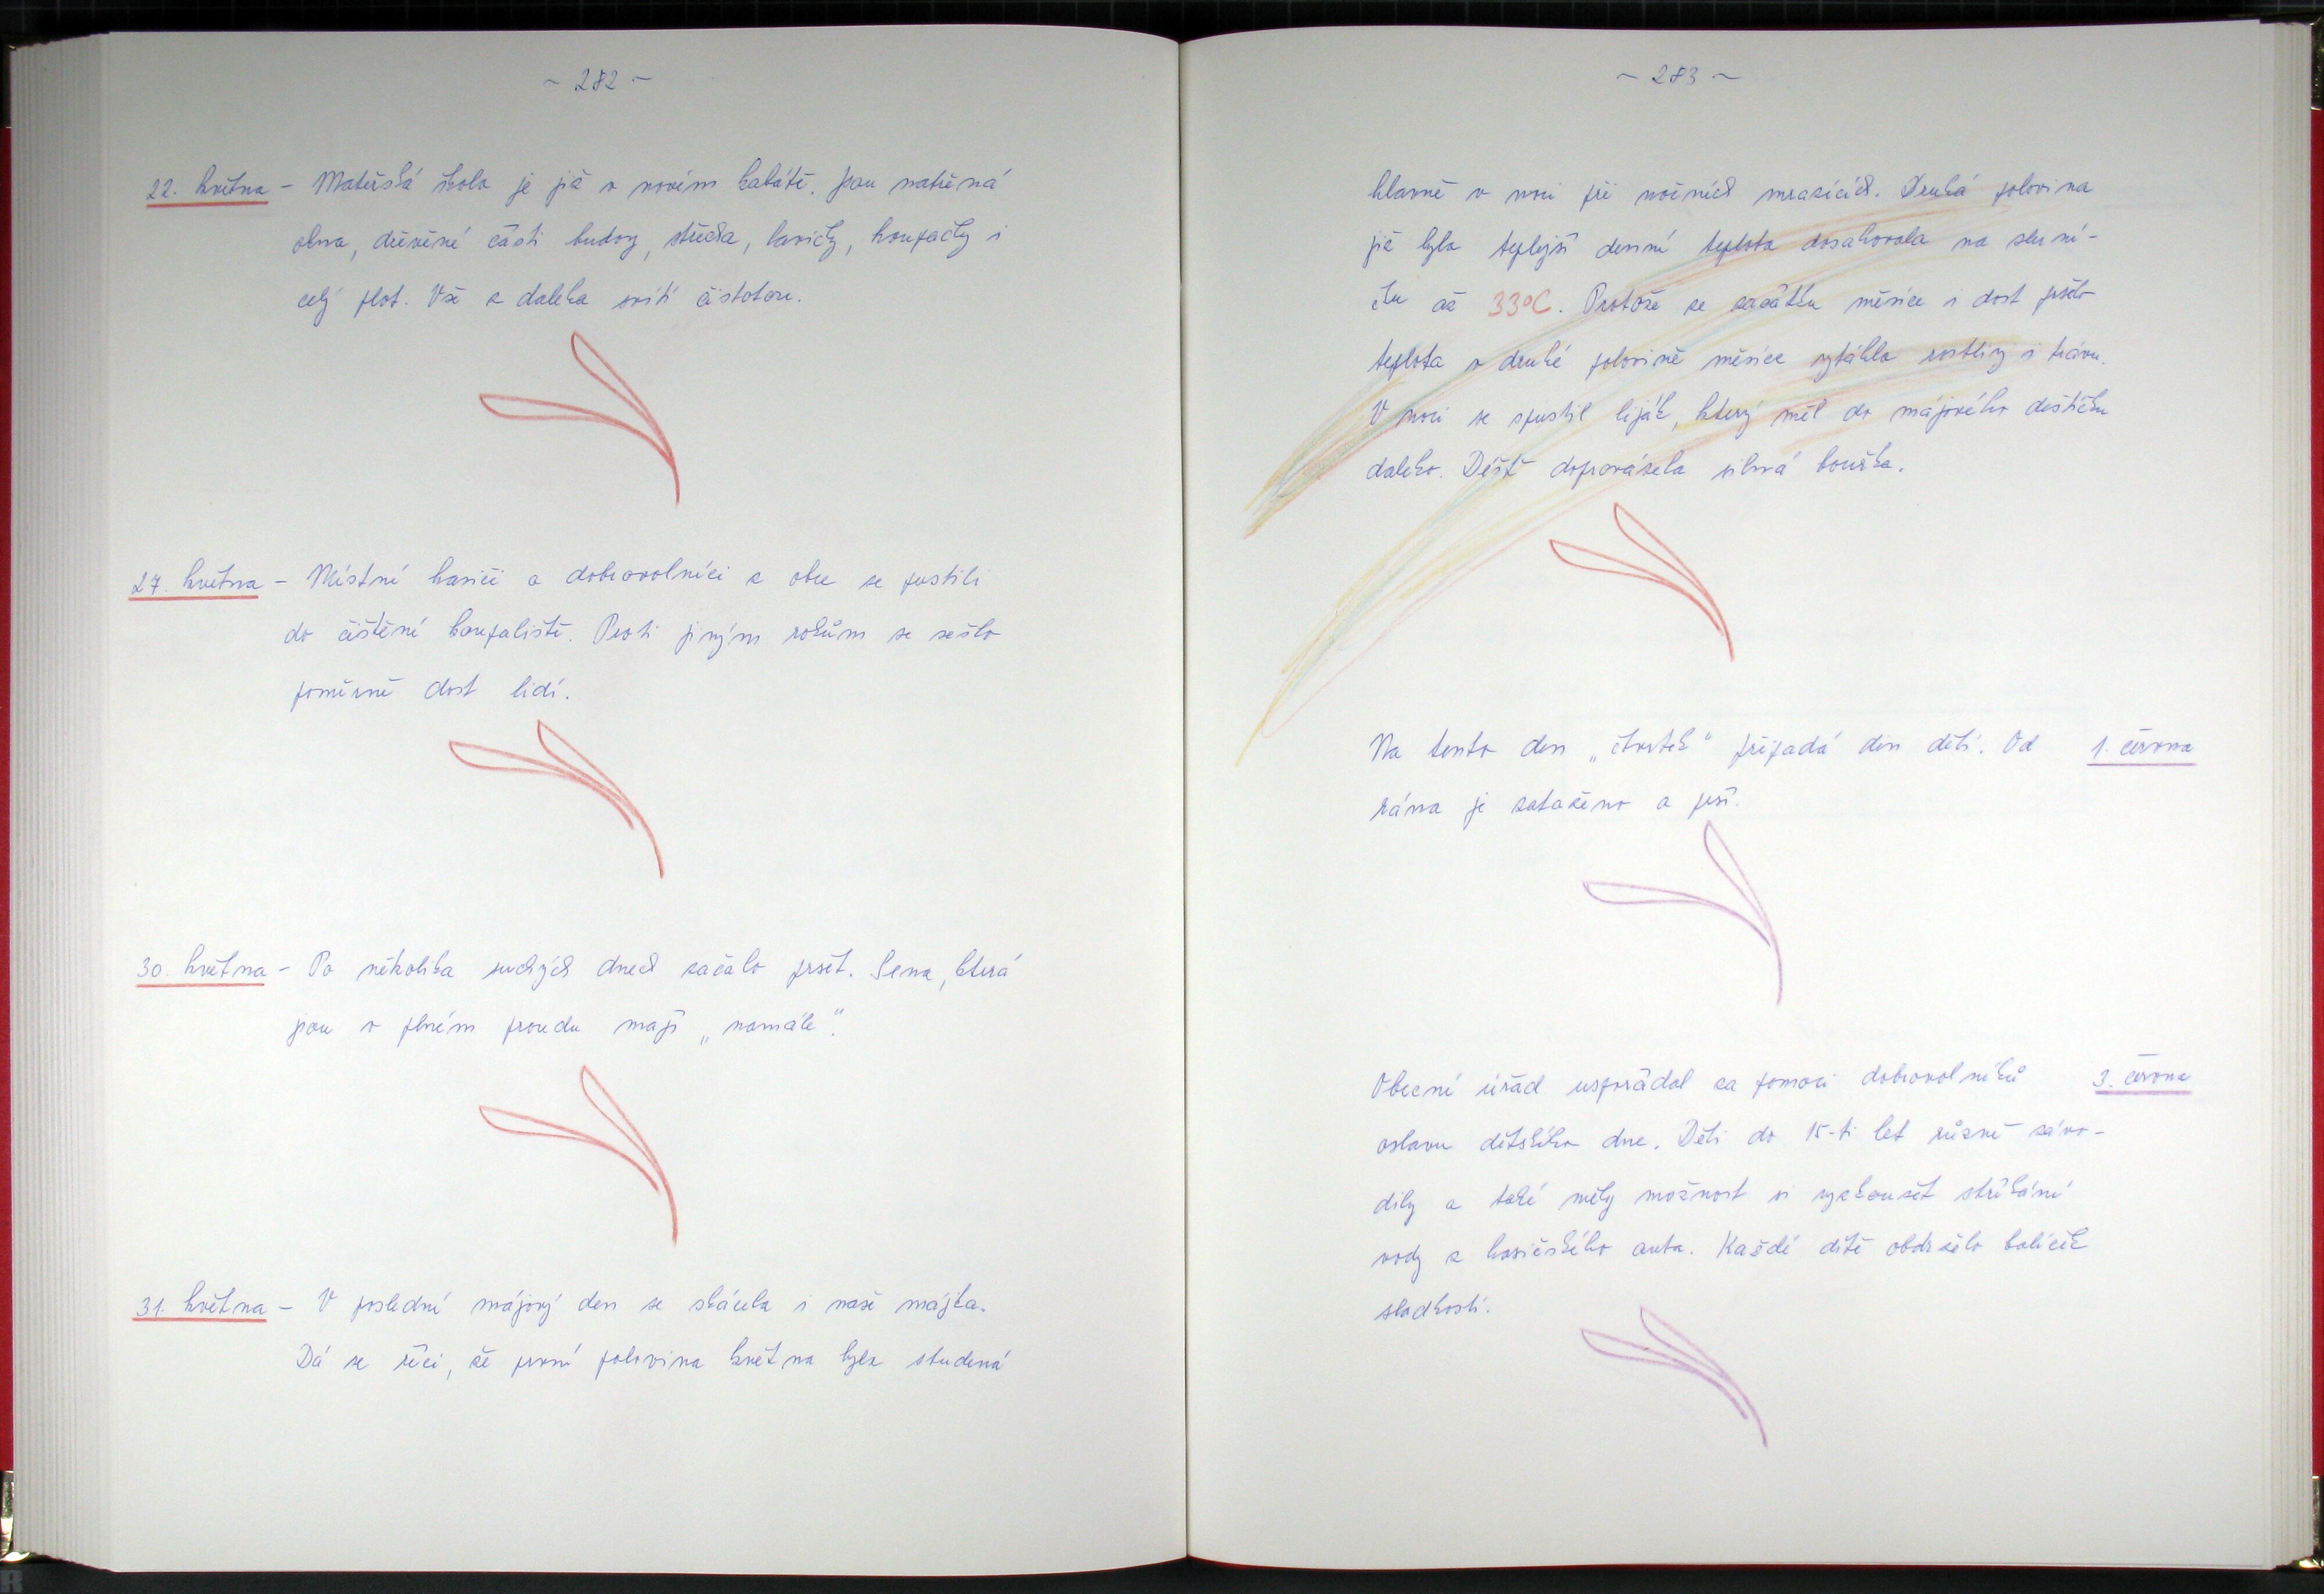 ~ 282 ~
22. května - Mateřská škola je již v novém kabátě. Jsou natřená
okna, dřevěné části budovy, střecha, lavičky, houpačky i
celý plot. Vše z daleka svítí čistotou.
27. května - Místní hasiči a dobrovolníci z obce se pustili
do čištění koupaliště. Proti jiným rokům se sešlo
poměrně dost lidí.
30. května - Po několika suchých dnech začalo pršet. Sena, která
jsou v plném proudu mají „namále".
31. května - V poslední májový den se skácela i naše májka.
Dá se říci, že první polovina května byla studená
~ 283 ~
hlavně v noci při nočních mrazících. Druhá polovina
již byla teplejší denní teplota dosahovala na sluní-
čku až 33°C. Protože ze začátku měsíce i dost pršelo
teplota v druhé polovině měsíce vytáhla rostliny i trávu.
V noci se spustil liják, který měl do májového deštíčku
daleko. Déšť doprovázela silná bouřka.
Na tento den „čtvrtek" připadá den dětí. Od 1. června
rána je zataženo a prší.
Obecní úřad uspořádal za pomoci dobrovolníků 3. června
oslavu dětského dne. Děti do 15-ti let různě závo-
dily a také měly možnost si vyzkoušet stříkání
vody z hasičského auta. Každé dítě obdrželo balíček
sladkostí.